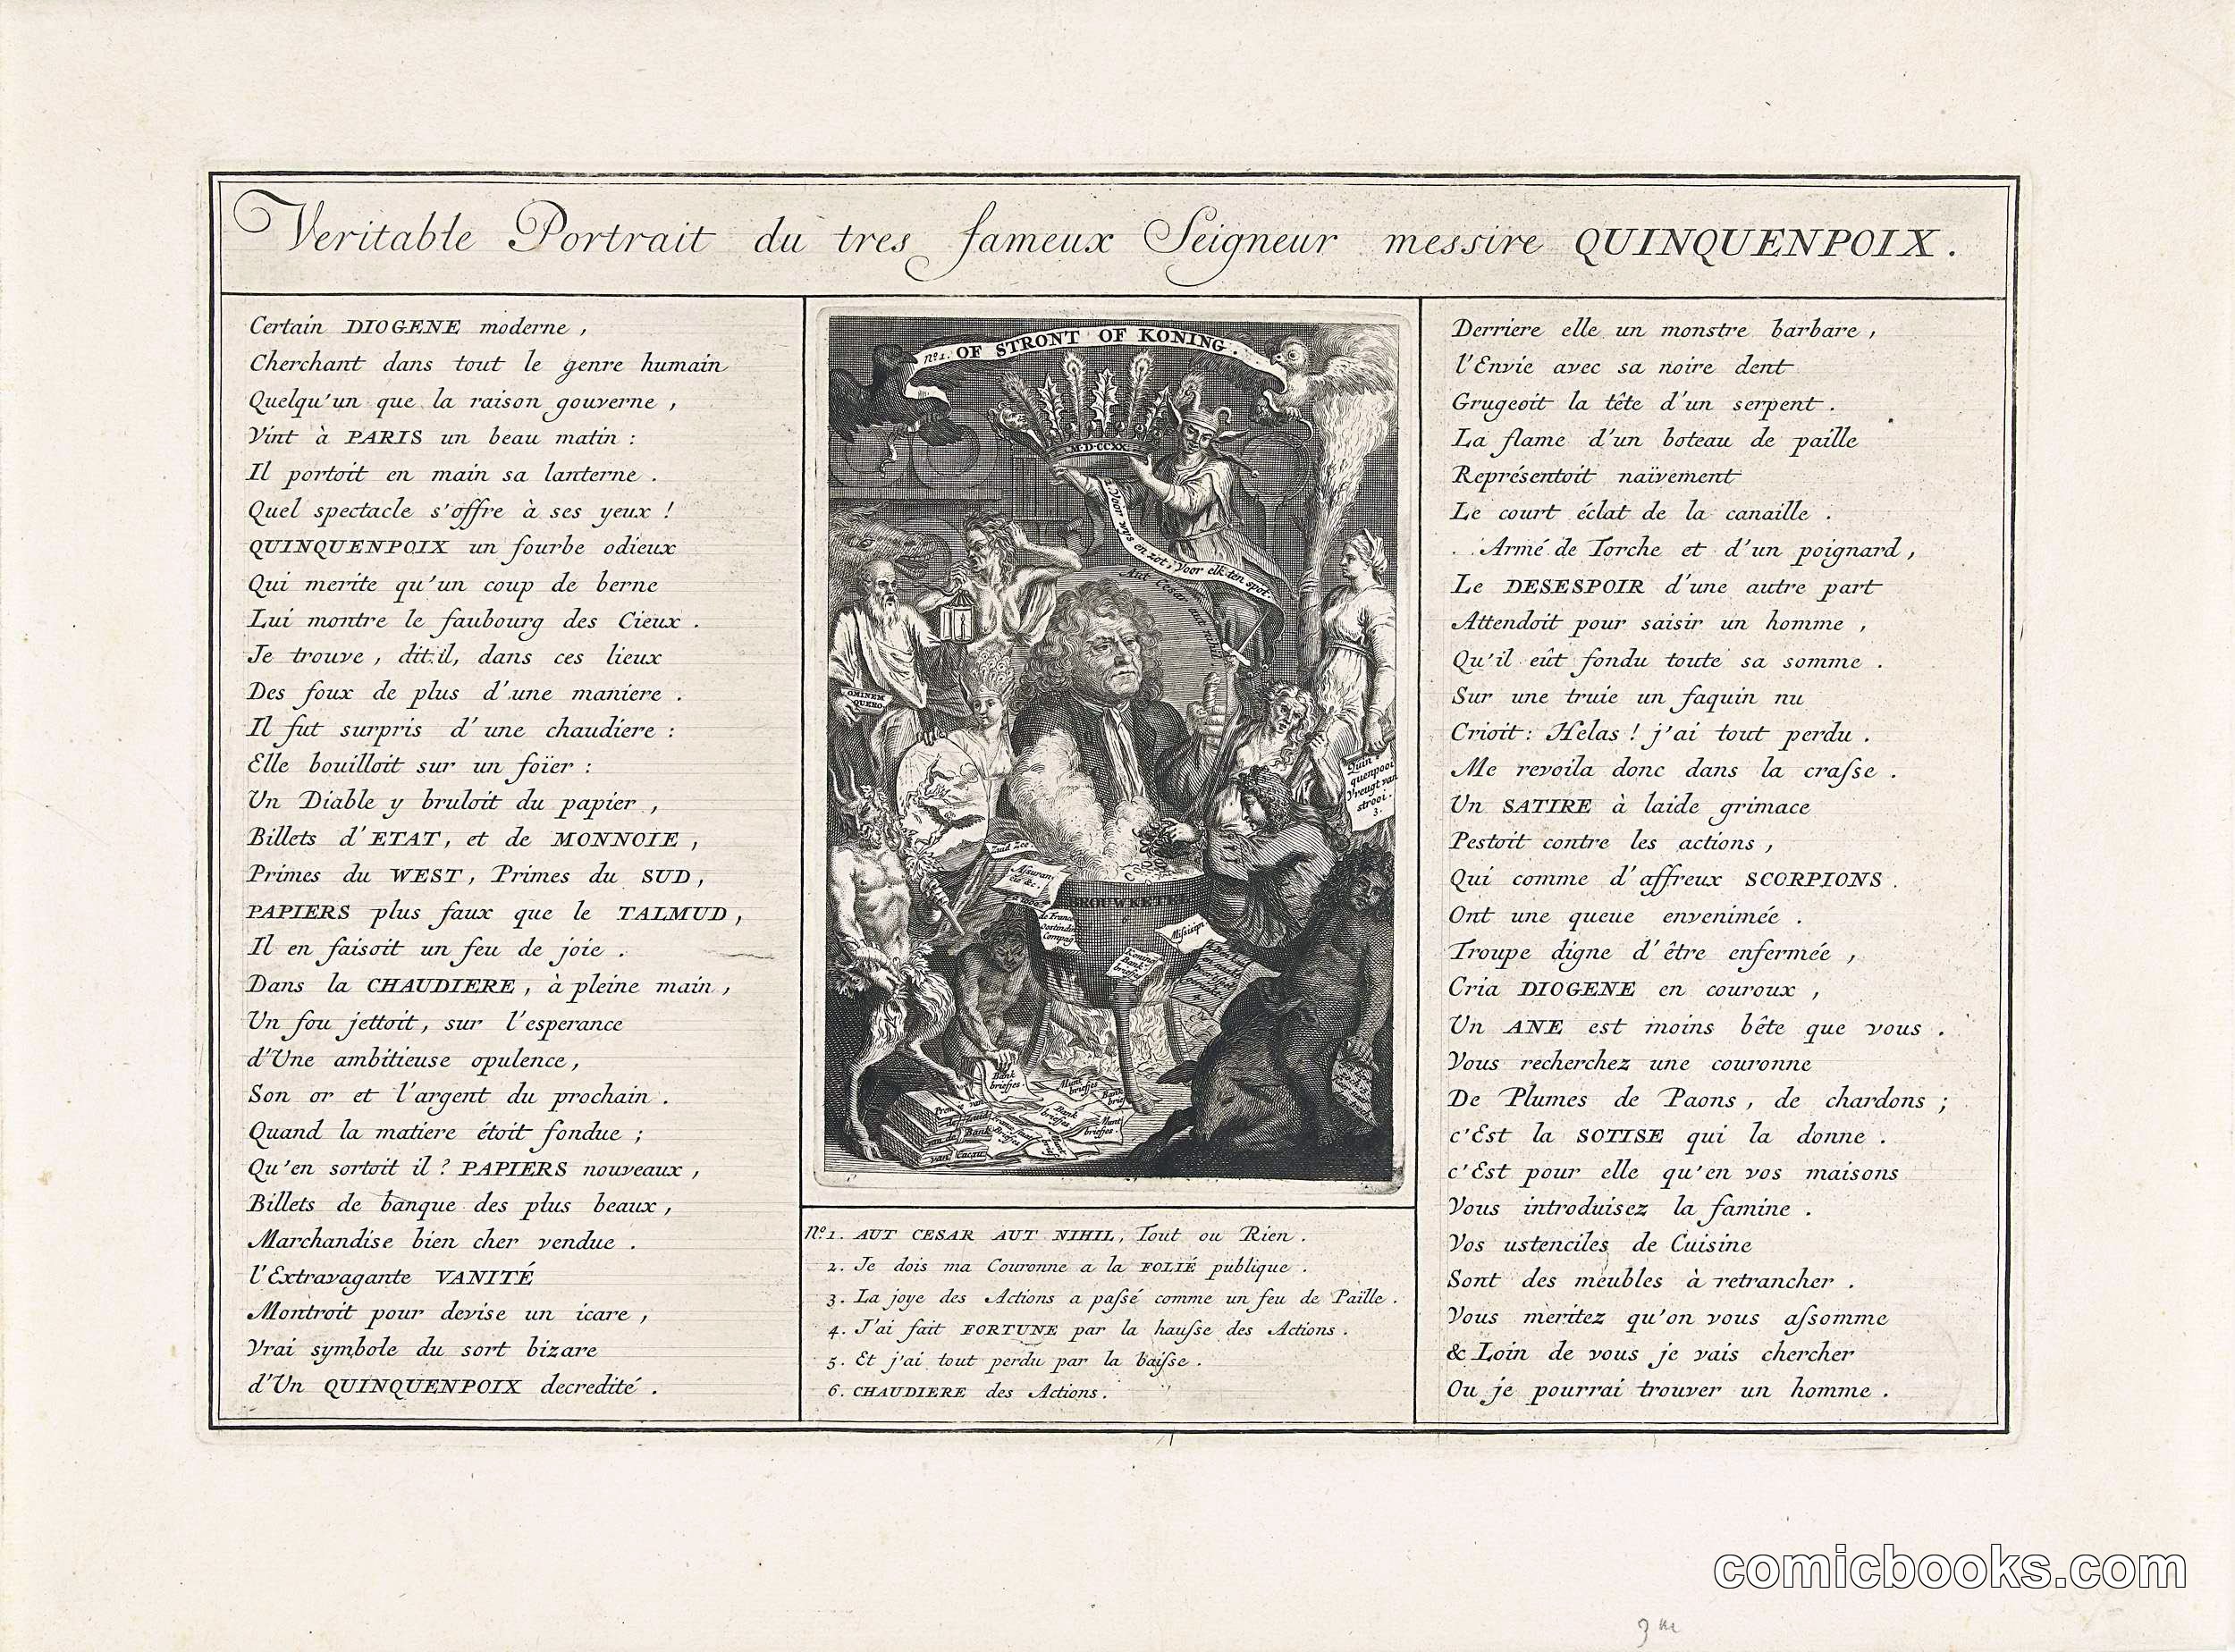 Veritable Portrait du tres fameux Seigneur messire QUINQUENPOIX.
Certain DIOGENE moderne,
Cherchant dans tout le genre humain
Quelqu'un que la raison gouverne,
Vint à PARIS un beau matin:
Il portoit en main sa lanterne.
Quel spectacle s'offre à ses yeux!
QUINQUENPOIX un fourbe odieux
Qui merite qu'un coup de berne
Lui montre le faubourg des Cieux.
Je trouve, dit.il, dans ces lieux
Des foux de plus d'une maniere.
Il fut surpris d'une chaudiere:
Elle bouilloit sur un foïer:
Un Diable y bruloit du papier,
Billets d'ETAT, et de MONNOIE,
Primes du WEST, Primes du SUD,
PAPIERS plus faux que le TALMUD,
Il en faisoit un feu de joie.
Dans la CHAUDIERE, à pleine main,
Un fou jettoit, sur l'esperance
d'Une ambitieuse opulence,
Son or et l'argent du prochain.
Quand la matiere étoit fondue;
Qu'en sortoit il? PAPIERS nouveaux,
Billets de banque des plus beaux,
Marchandise bien cher vendue.
l'Extravagante VANITÉ
Montroit pour devise un icare,
Vrai symbole du sort bizare
d'Un QUINQUENPOIX decredité.
No 1. OF STRONT OF KONING.
M·D·CCXX.
2. Voor wys en zot, Voor elk ten spot.
Aut Cesar aut nihil.
OMINEM
QUERO.
Quin
quenpooi
Vreugt van
strooi.
3.
Zuid Zee
Assuran
tie &c.
de France
Oostindise
Compag
BROUWKETEL
6
Missisipi
Contra
Bank
briefjes
Bank
briefjes.
Munt
briefjes
Bank
brief
Bank
briefjes
Munt
briefjes.
No 1. AUT CESAR AUT NIHIL, Tout ou Rien.
2. Je dois ma Couronne a la FOLIÉ publique.
3. La joye des Actions a paſsé comme un feu de Paille.
4. J'ai fait FORTUNE par la hauſse des Actions.
5. Et j'ai tout perdu par la baiſse.
6. CHAUDIERE des Actions.
Derriere elle un monstre barbare,
l'Envie avec sa noire dent
Grugeoit la tête d'un serpent.
La flame d'un boteau de paille
Représentoit naïvement
Le court éclat de la canaille.
Armé de Torche et d'un poignard,
Le DESESPOIR d'une autre part
Attendoit pour saisir un homme,
Qu'il eût fondu toute sa somme.
Sur une truie un faquin nu
Crioit: Helas! j'ai tout perdu.
Me revoila donc dans la craſse.
Un SATIRE à laide grimace
Pestoit contre les actions,
Qui comme d'affreux SCORPIONS.
Ont une queue envenimée.
Troupe digne d'être enfermée,
Cria DIOGENE en couroux,
Un ANE est moins bête que vous.
Vous recherchez une couronne
De Plumes de Paons, de chardons;
c'Est la SOTISE qui la donne.
c'Est pour elle qu'en vos maisons
Vous introduisez la famine.
Vos ustenciles de Cuisine
Sont des meubles à retrancher.
Vous meritez qu'on vous aſsomme
& Loin de vous je vais chercher
Ou je pourrai trouver un homme.
comicbooks.com